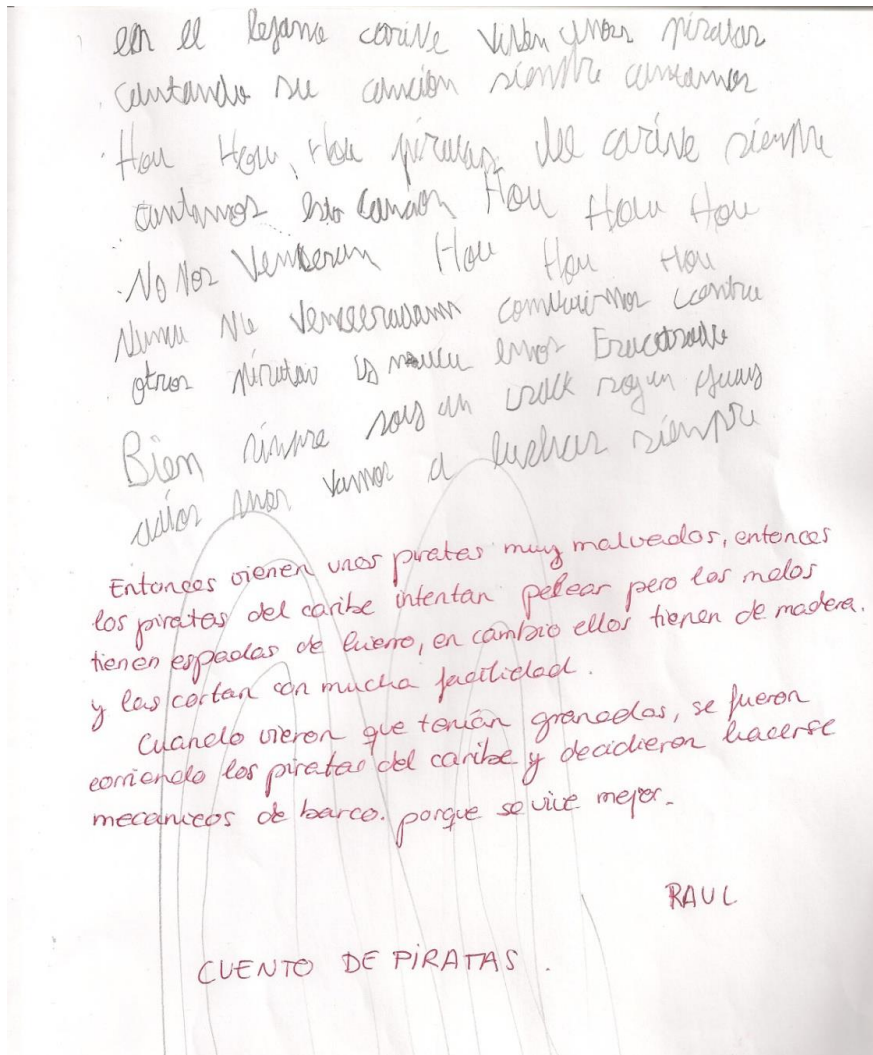 en el lejano carive viven unos piratas
cantando su canción siempre cantamos
Hou Hou, Hou piratas del carive siempre
cantamos esta canción Hou Hou Hou
No Nos Venceran Hou Hou Hou
Nunca Me contra
otros piratas
Bien sinpre sois un crack
vamos a luchar siempre
Entonces vienen unos piratas muy malvados, entonces
los piratas del caribe intentan pelear pero los malos
tienen espadas de hierro, en cambio ellos tienen de madera.
y las cortan con mucha facilidad.
Cuando vieron que tenían granadas, se fueron
corriendo los piratas del caribe y decidieron hacerse
mecanicos de barco. porque se vive mejor.
RAUL
CUENTO DE PIRATAS.